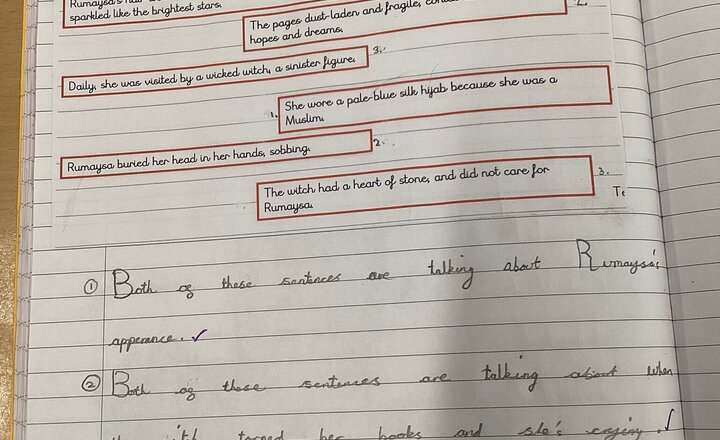 Rumaysa's hair
sparkled like the brightest stars.
The pages dust-laden and fragile,
hopes and dreams.
2.
Daily, she was visited by a wicked witch, a sinister figure.
3.
1.
She wore a pale-blue silk hijab because she was a
Muslim.
Rumaysa buried her head in her hands, sobbing.
2.
The witch had a heart of stone, and did not care for
Rumaysa.
3.
Te
1 Both of these sentences are talking about Rumaysa's
apperance. ✓
2 Both of these sentences are talking about when
her books and she's crying. ✓